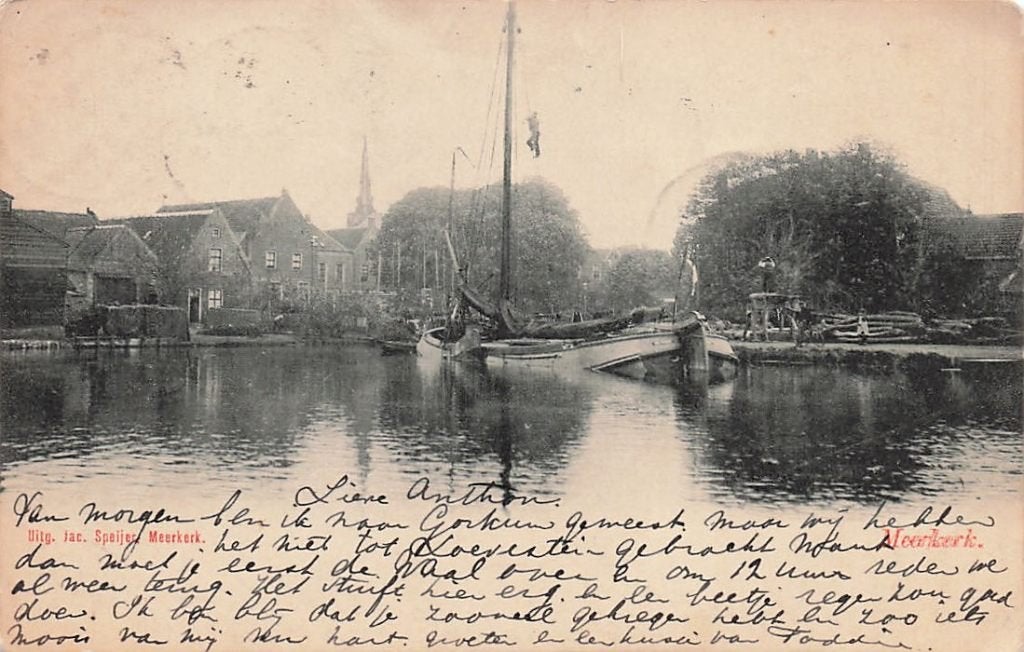 Lieve Anthon.
Van morgen ben ik naar Gorkum geweest. maar wij hebben
Uitg. Jac. Speijer, Meerkerk.
Meerkerk.
het niet tot Loevestein gebracht want
dan moet je eerst de Waal over en om 12 uur reden we
al weer terug. Het stuift hier erg. en een beetje regen zou goed
doen. Ik ben blij dat je zooveel gekregen hebt en zoo iets
moois van mij een hart. groeten en een kusje van